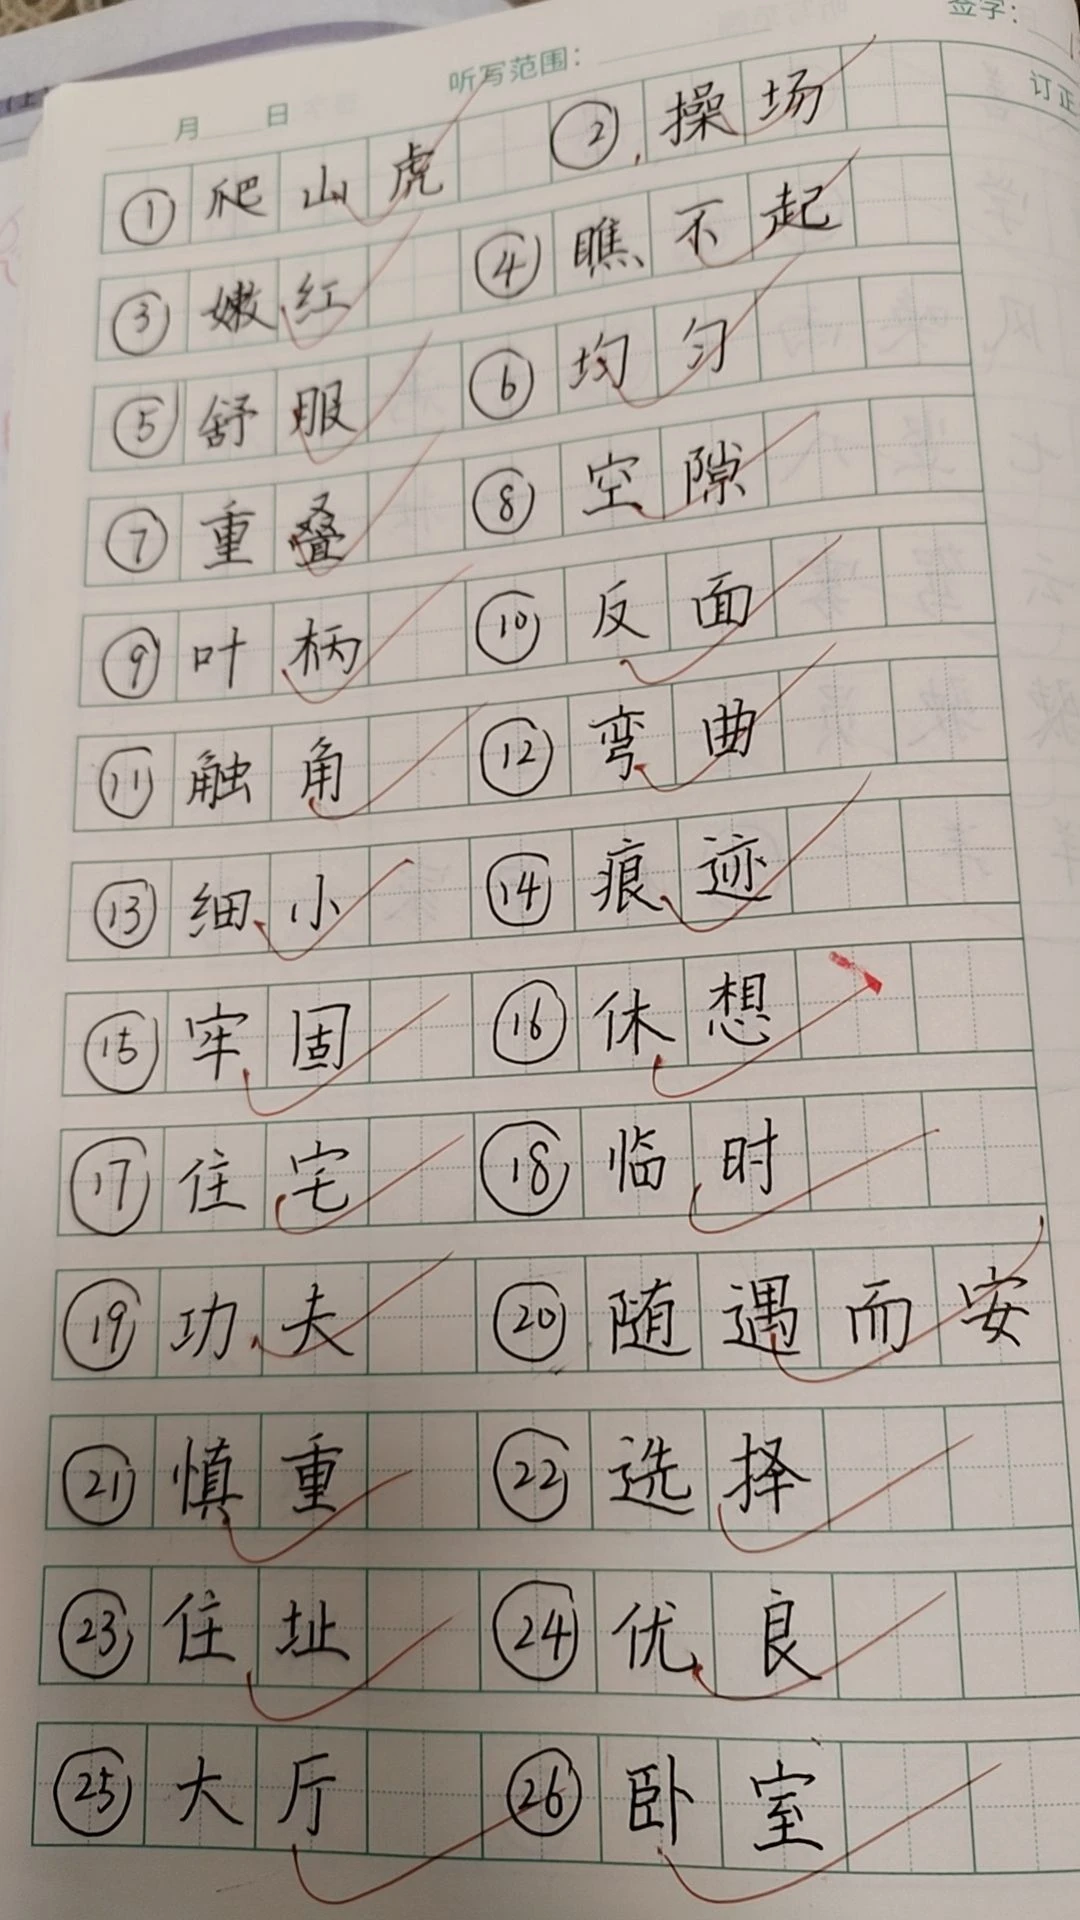 签字：
听写范围：
月 日
订正
① 爬山虎 ② 操场
③ 嫩红 ④ 瞧不起
⑤ 舒服 ⑥ 均匀
⑦ 重叠 ⑧ 空隙
⑨ 叶柄 ⑩ 反面
⑪ 触角 ⑫ 弯曲
⑬ 细小 ⑭ 痕迹
⑮ 牢固 ⑯ 休想
⑰ 住宅 ⑱ 临时
⑲ 功夫 ⑳ 随遇而安
㉑ 慎重 ㉒ 选择
㉓ 住址 ㉔ 优良
㉕ 大厅 ㉖ 卧室